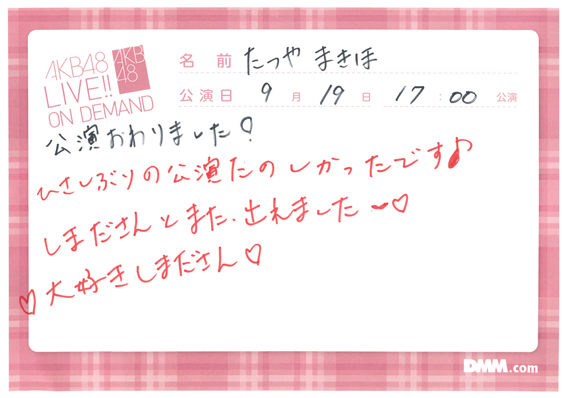 AKB48
LIVE!!
ON DEMAND
AKB
48
名前 たつや まきほ
公演日 9月19日 17:00公演
公演おわりました♡
ひさしぶりの公演たのしかったです♪
しまださんとまた、出れました〜♡
♡大好きしまださん♡
DMM.com